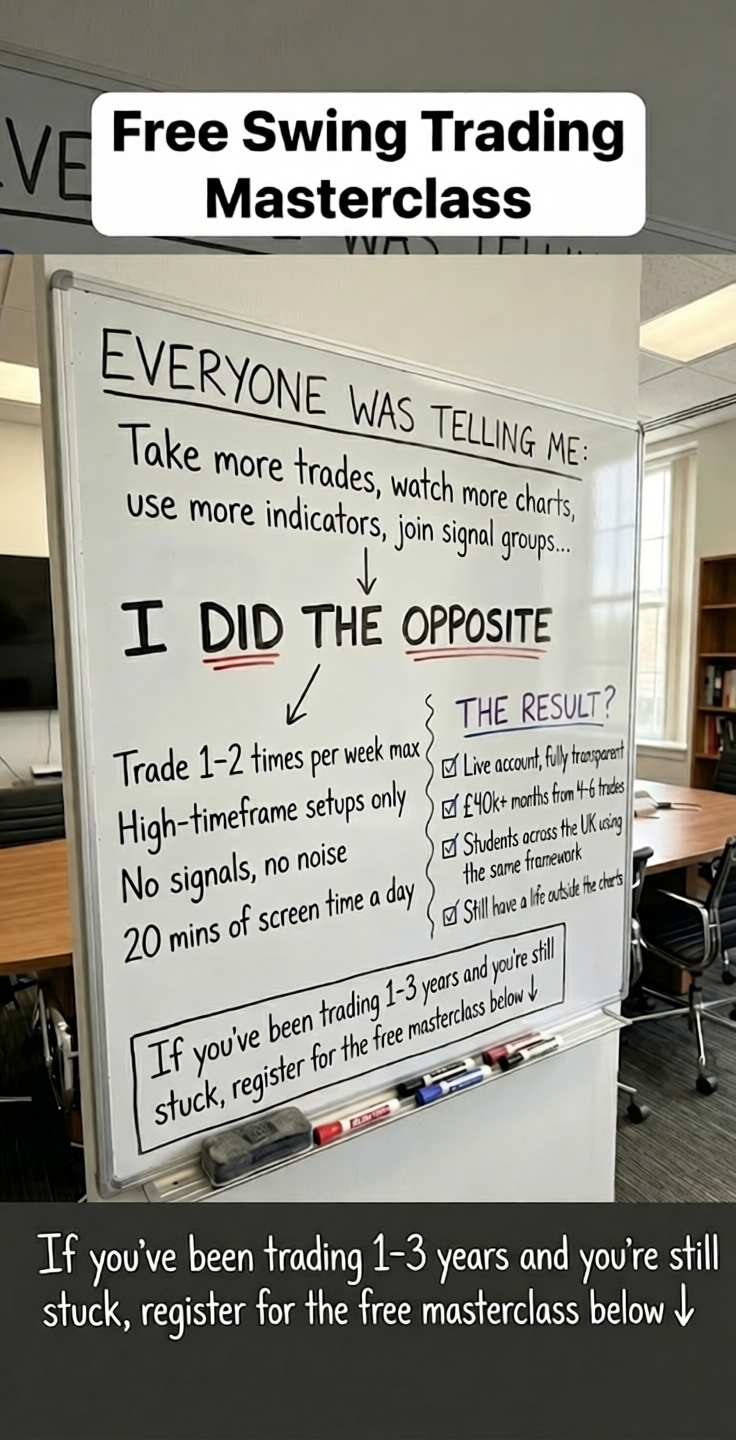 Free Swing Trading
Masterclass
VE
WAS TELLIN
EVERYONE WAS TELLING ME:
Take more trades, watch more charts,
use more indicators, join signal groups...
↓
I DID THE OPPOSITE
Trade 1-2 times per week max
High-timeframe setups only
No signals, no noise
20 mins of screen time a day
THE RESULT?
☑ Live account, fully transparent
☑ £40k+ months from 4-6 trades
☑ Students across the UK using
the same framework
☑ Still have a life outside the charts
If you've been trading 1-3 years and you're still
stuck, register for the free masterclass below ↓
If you've been trading 1-3 years and you're still
stuck, register for the free masterclass below ↓